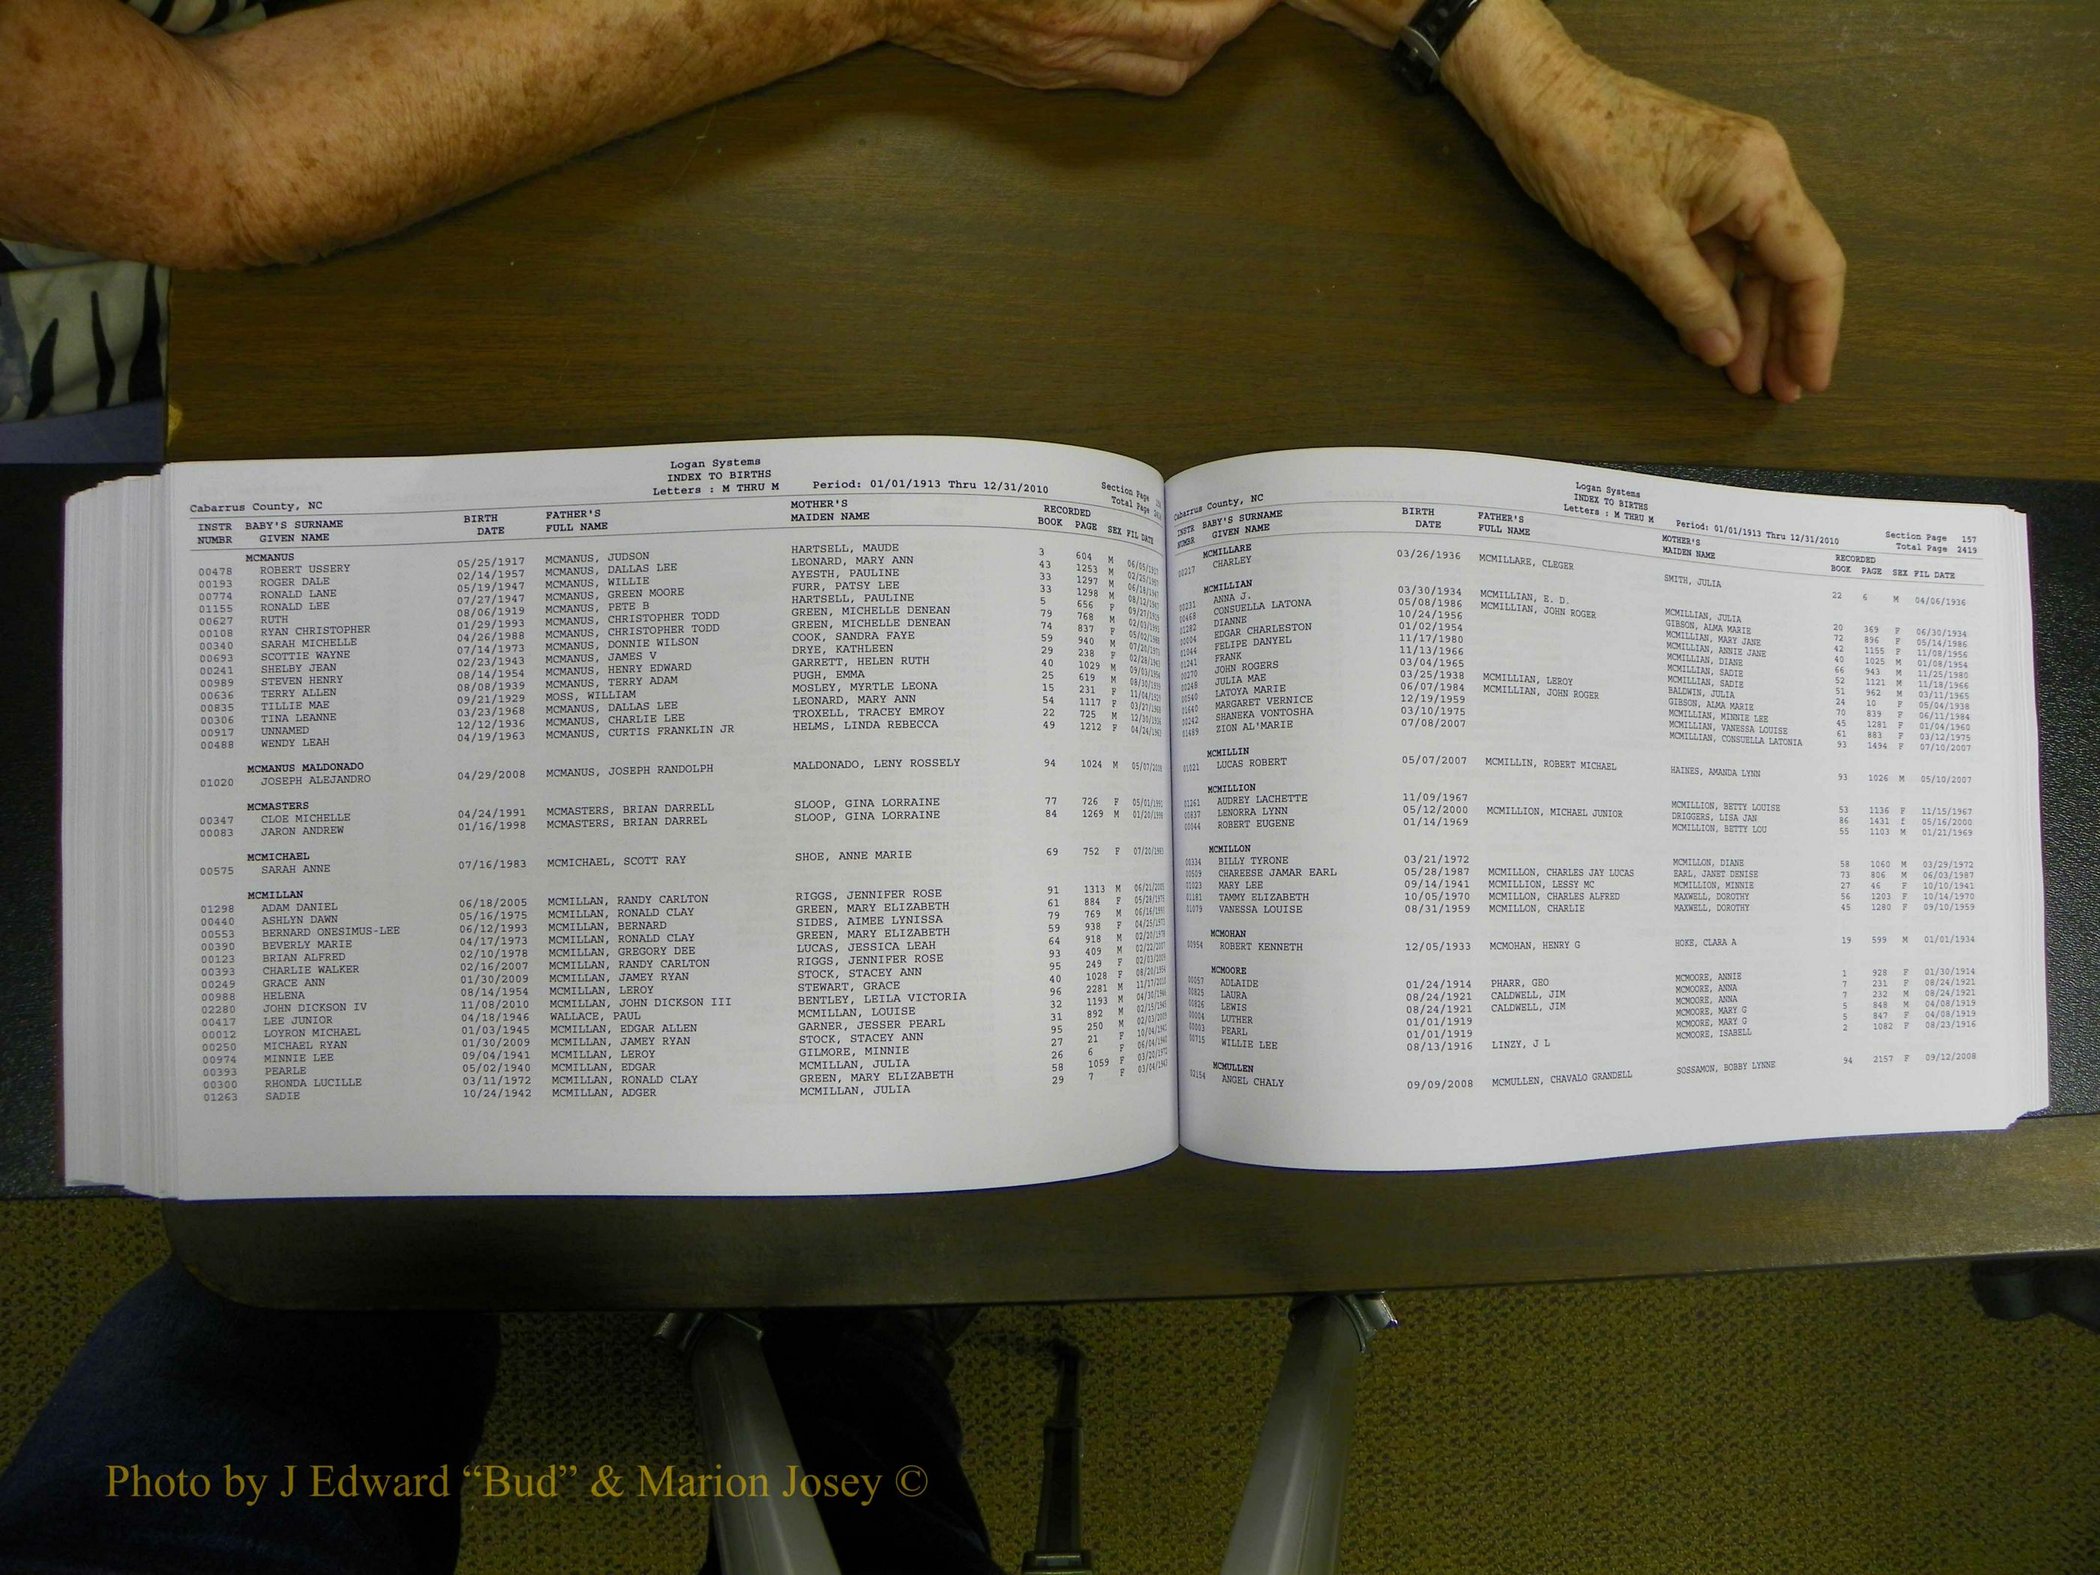 Logan Systems
INDEX TO BIRTHS
Letters : M THRU M Period: 01/01/1913 Thru 12/31/2010 Section Page
Cabarrus County, NC Total Page
INSTR BABY'S SURNAME BIRTH FATHER'S MOTHER'S RECORDED
NUMBR GIVEN NAME DATE FULL NAME MAIDEN NAME BOOK PAGE SEX FIL DATE
MCMANUS
00478 ROBERT USSERY 05/25/1917 MCMANUS, JUDSON HARTSELL, MAUDE 3 604 M 06/05/1917
00193 ROGER DALE 02/14/1957 MCMANUS, DALLAS LEE LEONARD, MARY ANN 43 1253 M 02/25/1957
00774 RONALD LANE 05/19/1947 MCMANUS, WILLIE AYESTH, PAULINE 33 1297 M 06/18/1947
01155 RONALD LEE 07/27/1947 MCMANUS, GREEN MOORE FURR, PATSY LEE 33 1298 M 08/12/1947
00627 RUTH 08/06/1919 MCMANUS, PETE B HARTSELL, PAULINE 5 656 F 09/27/1919
00108 RYAN CHRISTOPHER 01/29/1993 MCMANUS, CHRISTOPHER TODD GREEN, MICHELLE DENEAN 79 768 M 02/03/1993
00340 SARAH MICHELLE 04/26/1988 MCMANUS, CHRISTOPHER TODD GREEN, MICHELLE DENEAN 74 837 F 05/02/1988
00693 SCOTTIE WAYNE 07/14/1973 MCMANUS, DONNIE WILSON COOK, SANDRA FAYE 59 940 M 07/20/1973
00241 SHELBY JEAN 02/23/1943 MCMANUS, JAMES V DRYE, KATHLEEN 29 238 F 02/28/1943
00989 STEVEN HENRY 08/14/1954 MCMANUS, HENRY EDWARD GARRETT, HELEN RUTH 40 1029 M 09/03/1954
00636 TERRY ALLEN 08/08/1939 MCMANUS, TERRY ADAM PUGH, EMMA 25 619 M 08/30/1939
00835 TILLIE MAE 09/21/1929 MOSS, WILLIAM MOSLEY, MYRTLE LEONA 15 231 F 11/04/1929
00306 TINA LEANNE 03/23/1968 MCMANUS, DALLAS LEE LEONARD, MARY ANN 54 1117 F 03/27/1968
00917 UNNAMED 12/12/1936 MCMANUS, CHARLIE LEE TROXELL, TRACEY EMROY 22 725 M 12/30/1936
00488 WENDY LEAH 04/19/1963 MCMANUS, CURTIS FRANKLIN JR HELMS, LINDA REBECCA 49 1212 F 04/24/1963
MCMANUS MALDONADO
01020 JOSEPH ALEJANDRO 04/29/2008 MCMANUS, JOSEPH RANDOLPH MALDONADO, LENY ROSSELY 94 1024 M 05/07/2008
MCMASTERS
00347 CLOE MICHELLE 04/24/1991 MCMASTERS, BRIAN DARRELL SLOOP, GINA LORRAINE 77 726 F 05/01/1991
00083 JARON ANDREW 01/16/1998 MCMASTERS, BRIAN DARREL SLOOP, GINA LORRAINE 84 1269 M 01/20/1998
MCMICHAEL
00575 SARAH ANNE 07/16/1983 MCMICHAEL, SCOTT RAY SHOE, ANNE MARIE 69 752 F 07/20/1983
MCMILLAN
01298 ADAM DANIEL 06/18/2005 MCMILLAN, RANDY CARLTON RIGGS, JENNIFER ROSE 91 1313 M 06/21/2005
00440 ASHLYN DAWN 05/16/1975 MCMILLAN, RONALD CLAY GREEN, MARY ELIZABETH 61 884 F 05/28/1975
00553 BERNARD ONESIMUS-LEE 06/12/1993 MCMILLAN, BERNARD SIDES, AIMEE LYNISSA 79 769 M 06/16/1993
00390 BEVERLY MARIE 04/17/1973 MCMILLAN, RONALD CLAY GREEN, MARY ELIZABETH 59 938 F 04/25/1973
00123 BRIAN ALFRED 02/10/1978 MCMILLAN, GREGORY DEE LUCAS, JESSICA LEAH 64 918 M 02/20/1978
00393 CHARLIE WALKER 02/16/2007 MCMILLAN, RANDY CARLTON RIGGS, JENNIFER ROSE 93 409 M 02/22/2007
00249 GRACE ANN 01/30/2009 MCMILLAN, JAMEY RYAN STOCK, STACEY ANN 95 249 F 02/03/2009
00988 HELENA 08/14/1954 MCMILLAN, LEROY STEWART, GRACE 40 1028 F 08/20/1954
02280 JOHN DICKSON IV 11/08/2010 MCMILLAN, JOHN DICKSON III BENTLEY, LEILA VICTORIA 96 2281 M 11/17/2010
00417 LEE JUNIOR 04/18/1946 WALLACE, PAUL MCMILLAN, LOUISE 32 1193 M 04/30/1946
00012 LOYRON MICHAEL 01/03/1945 MCMILLAN, EDGAR ALLEN GARNER, JESSER PEARL 31 892 M 02/15/1945
00250 MICHAEL RYAN 01/30/2009 MCMILLAN, JAMEY RYAN STOCK, STACEY ANN 95 250 M 02/03/2009
00974 MINNIE LEE 09/04/1941 MCMILLAN, LEROY GILMORE, MINNIE 27 21 F 10/04/1941
00393 PEARLE 05/02/1940 MCMILLAN, EDGAR MCMILLAN, JULIA 26 6 F 06/04/1940
00300 RHONDA LUCILLE 03/11/1972 MCMILLAN, RONALD CLAY GREEN, MARY ELIZABETH 58 1059 F 03/20/1972
01263 SADIE 10/24/1942 MCMILLAN, ADGER MCMILLAN, JULIA 29 7 F 03/04/1943
Logan Systems
INDEX TO BIRTHS
Letters : M THRU M Period: 01/01/1913 Thru 12/31/2010 Section Page 157
Cabarrus County, NC Total Page 2419
INSTR BABY'S SURNAME BIRTH FATHER'S MOTHER'S RECORDED
NUMBR GIVEN NAME DATE FULL NAME MAIDEN NAME BOOK PAGE SEX FIL DATE
MCMILLARE
00217 CHARLEY 03/26/1936 MCMILLARE, CLEGER SMITH, JULIA 22 6 M 04/06/1936
MCMILLIAN
00231 ANNA J. 03/30/1934 MCMILLIAN, E. D. MCMILLIAN, JULIA 20 369 F 06/30/1934
00468 CONSUELLA LATONA 05/08/1986 MCMILLIAN, JOHN ROGER GIBSON, ALMA MARIE 72 896 F 05/14/1986
01282 DIANNE 10/24/1956 MCMILLIAN, MARY JANE 42 1155 F 11/08/1956
00004 EDGAR CHARLESTON 01/02/1954 MCMILLIAN, ANNIE JANE 40 1025 M 01/08/1954
01044 FELIPE DANYEL 11/17/1980 MCMILLIAN, DIANE 66 943 M 11/25/1980
01241 FRANK 11/13/1966 MCMILLIAN, SADIE 52 1121 M 11/18/1966
00270 JOHN ROGERS 03/04/1965 MCMILLIAN, SADIE 51 962 M 03/11/1965
00248 JULIA MAE 03/25/1938 MCMILLIAN, LEROY BALDWIN, JULIA 24 10 F 05/04/1938
00540 LATOYA MARIE 06/07/1984 MCMILLIAN, JOHN ROGER GIBSON, ALMA MARIE 70 839 F 06/11/1984
01640 MARGARET VERNICE 12/19/1959 MCMILLIAN, MINNIE LEE 45 1281 F 01/04/1960
00242 SHANEKA VONTOSHA 03/10/1975 MCMILLIAN, VANESSA LOUISE 61 883 F 03/12/1975
01489 ZION AL'MARIE 07/08/2007 MCMILLIAN, CONSUELLA LATONIA 93 1494 F 07/10/2007
MCMILLIN
01021 LUCAS ROBERT 05/07/2007 MCMILLIN, ROBERT MICHAEL HAINES, AMANDA LYNN 93 1026 M 05/10/2007
MCMILLION
01261 AUDREY LACHETTE 11/09/1967 MCMILLION, BETTY LOUISE 53 1136 F 11/15/1967
00837 LENORRA LYNN 05/12/2000 MCMILLION, MICHAEL JUNIOR DRIGGERS, LISA JAN 86 1431 f 05/16/2000
00044 ROBERT EUGENE 01/14/1969 MCMILLION, BETTY LOU 55 1103 M 01/21/1969
MCMILLON
00334 BILLY TYRONE 03/21/1972 MCMILLON, DIANE 58 1060 M 03/29/1972
00509 CHAREESE JAMAR EARL 05/28/1987 MCMILLON, CHARLES JAY LUCAS EARL, JANET DENISE 73 806 M 06/03/1987
01023 MARY LEE 09/14/1941 MCMILLION, LESSY MC MCMILLION, MINNIE 27 46 F 10/10/1941
01181 TAMMY ELIZABETH 10/05/1970 MCMILLON, CHARLES ALFRED MAXWELL, DOROTHY 56 1203 F 10/14/1970
01079 VANESSA LOUISE 08/31/1959 MCMILLON, CHARLIE MAXWELL, DOROTHY 45 1280 F 09/10/1959
MCMOHAN
00954 ROBERT KENNETH 12/05/1933 MCMOHAN, HENRY G HOKE, CLARA A 19 599 M 01/01/1934
MCMOORE
00057 ADLAIDE 01/24/1914 PHARR, GEO MCMOORE, ANNIE 1 928 F 01/30/1914
00825 LAURA 08/24/1921 CALDWELL, JIM MCMOORE, ANNA 7 231 F 08/24/1921
00826 LEWIS 08/24/1921 CALDWELL, JIM MCMOORE, ANNA 7 232 M 08/24/1921
00004 LUTHER 01/01/1919 MCMOORE, MARY G 5 848 M 04/08/1919
00003 PEARL 01/01/1919 MCMOORE, MARY G 5 847 F 04/08/1919
00715 WILLIE LEE 08/13/1916 LINZY, J L MCMOORE, ISABELL 2 1082 F 08/23/1916
MCMULLEN
02154 ANGEL CHALY 09/09/2008 MCMULLEN, CHAVALO GRANDELL SOSSAMON, BOBBY LYNNE 94 2157 F 09/12/2008
Photo by J Edward “Bud” & Marion Josey ©